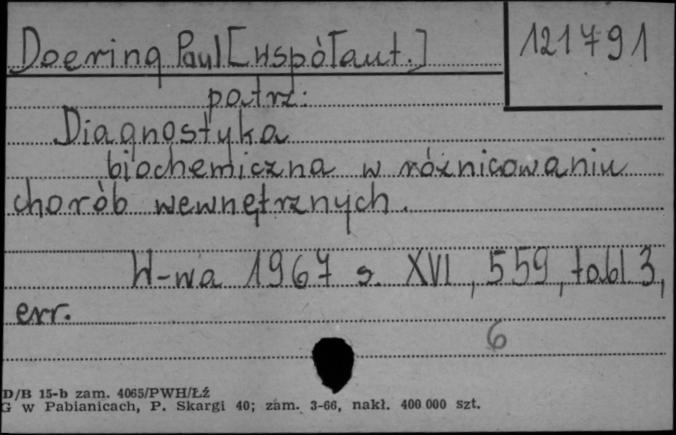 Doering Paul [współaut.]
121791
patrz:
Diagnostyka
biochemiczna w różnicowaniu
chorób wewnętrznych.
W-wa 1967 s. XVI, 559, tabl 3,
err.
6
D/B 15-b zam. 4065/PWH/Łź
G w Pabianicach, P. Skargi 40; zam. 3-66, nakł. 400 000 szt.